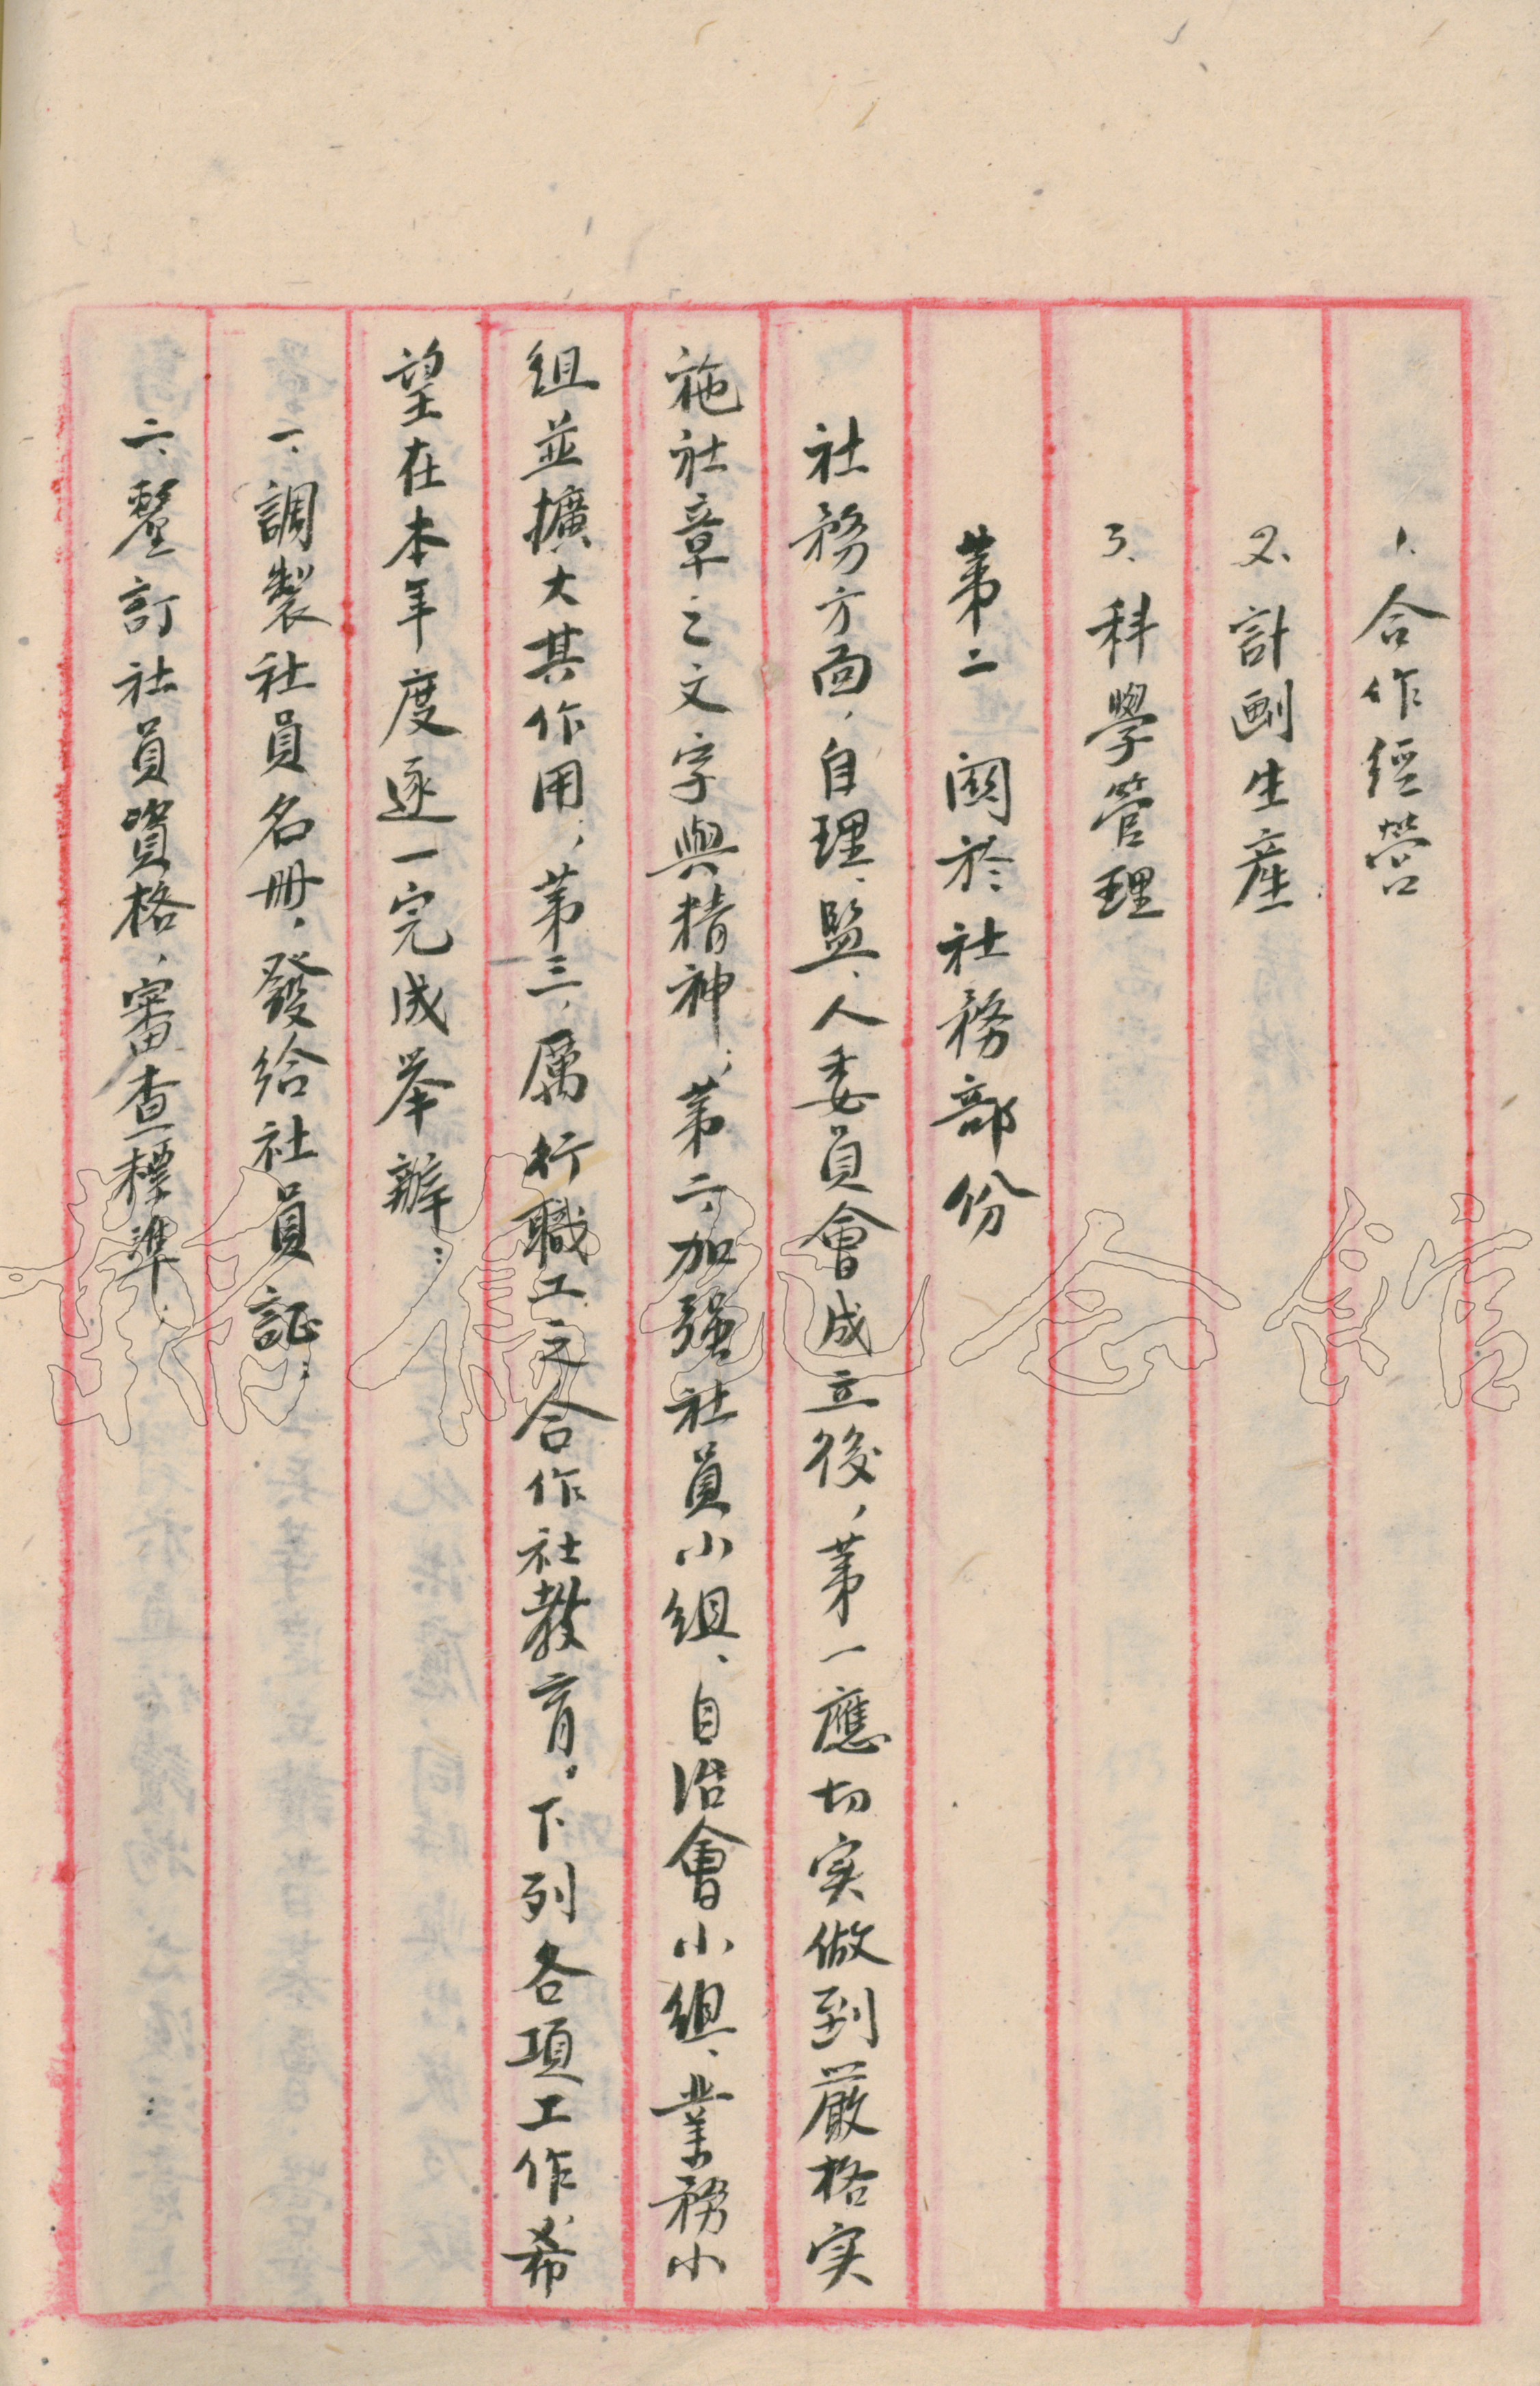 1、合作經营
2、計劃生產
3、科學管理
第二 関於社務部份
社務方面，自理、監、人委員會成立後，第一應切实做到嚴格实
施社章之文字與精神；第二、加强社員小組、自治會小組、業務小
組並擴大其作用；第三，厲行職工之合作社教育。下列各項工作，希
望在本年度逐一完成举辦：
一、調製社員名冊，發給社員証；
二、整訂社員資格，審查標準；